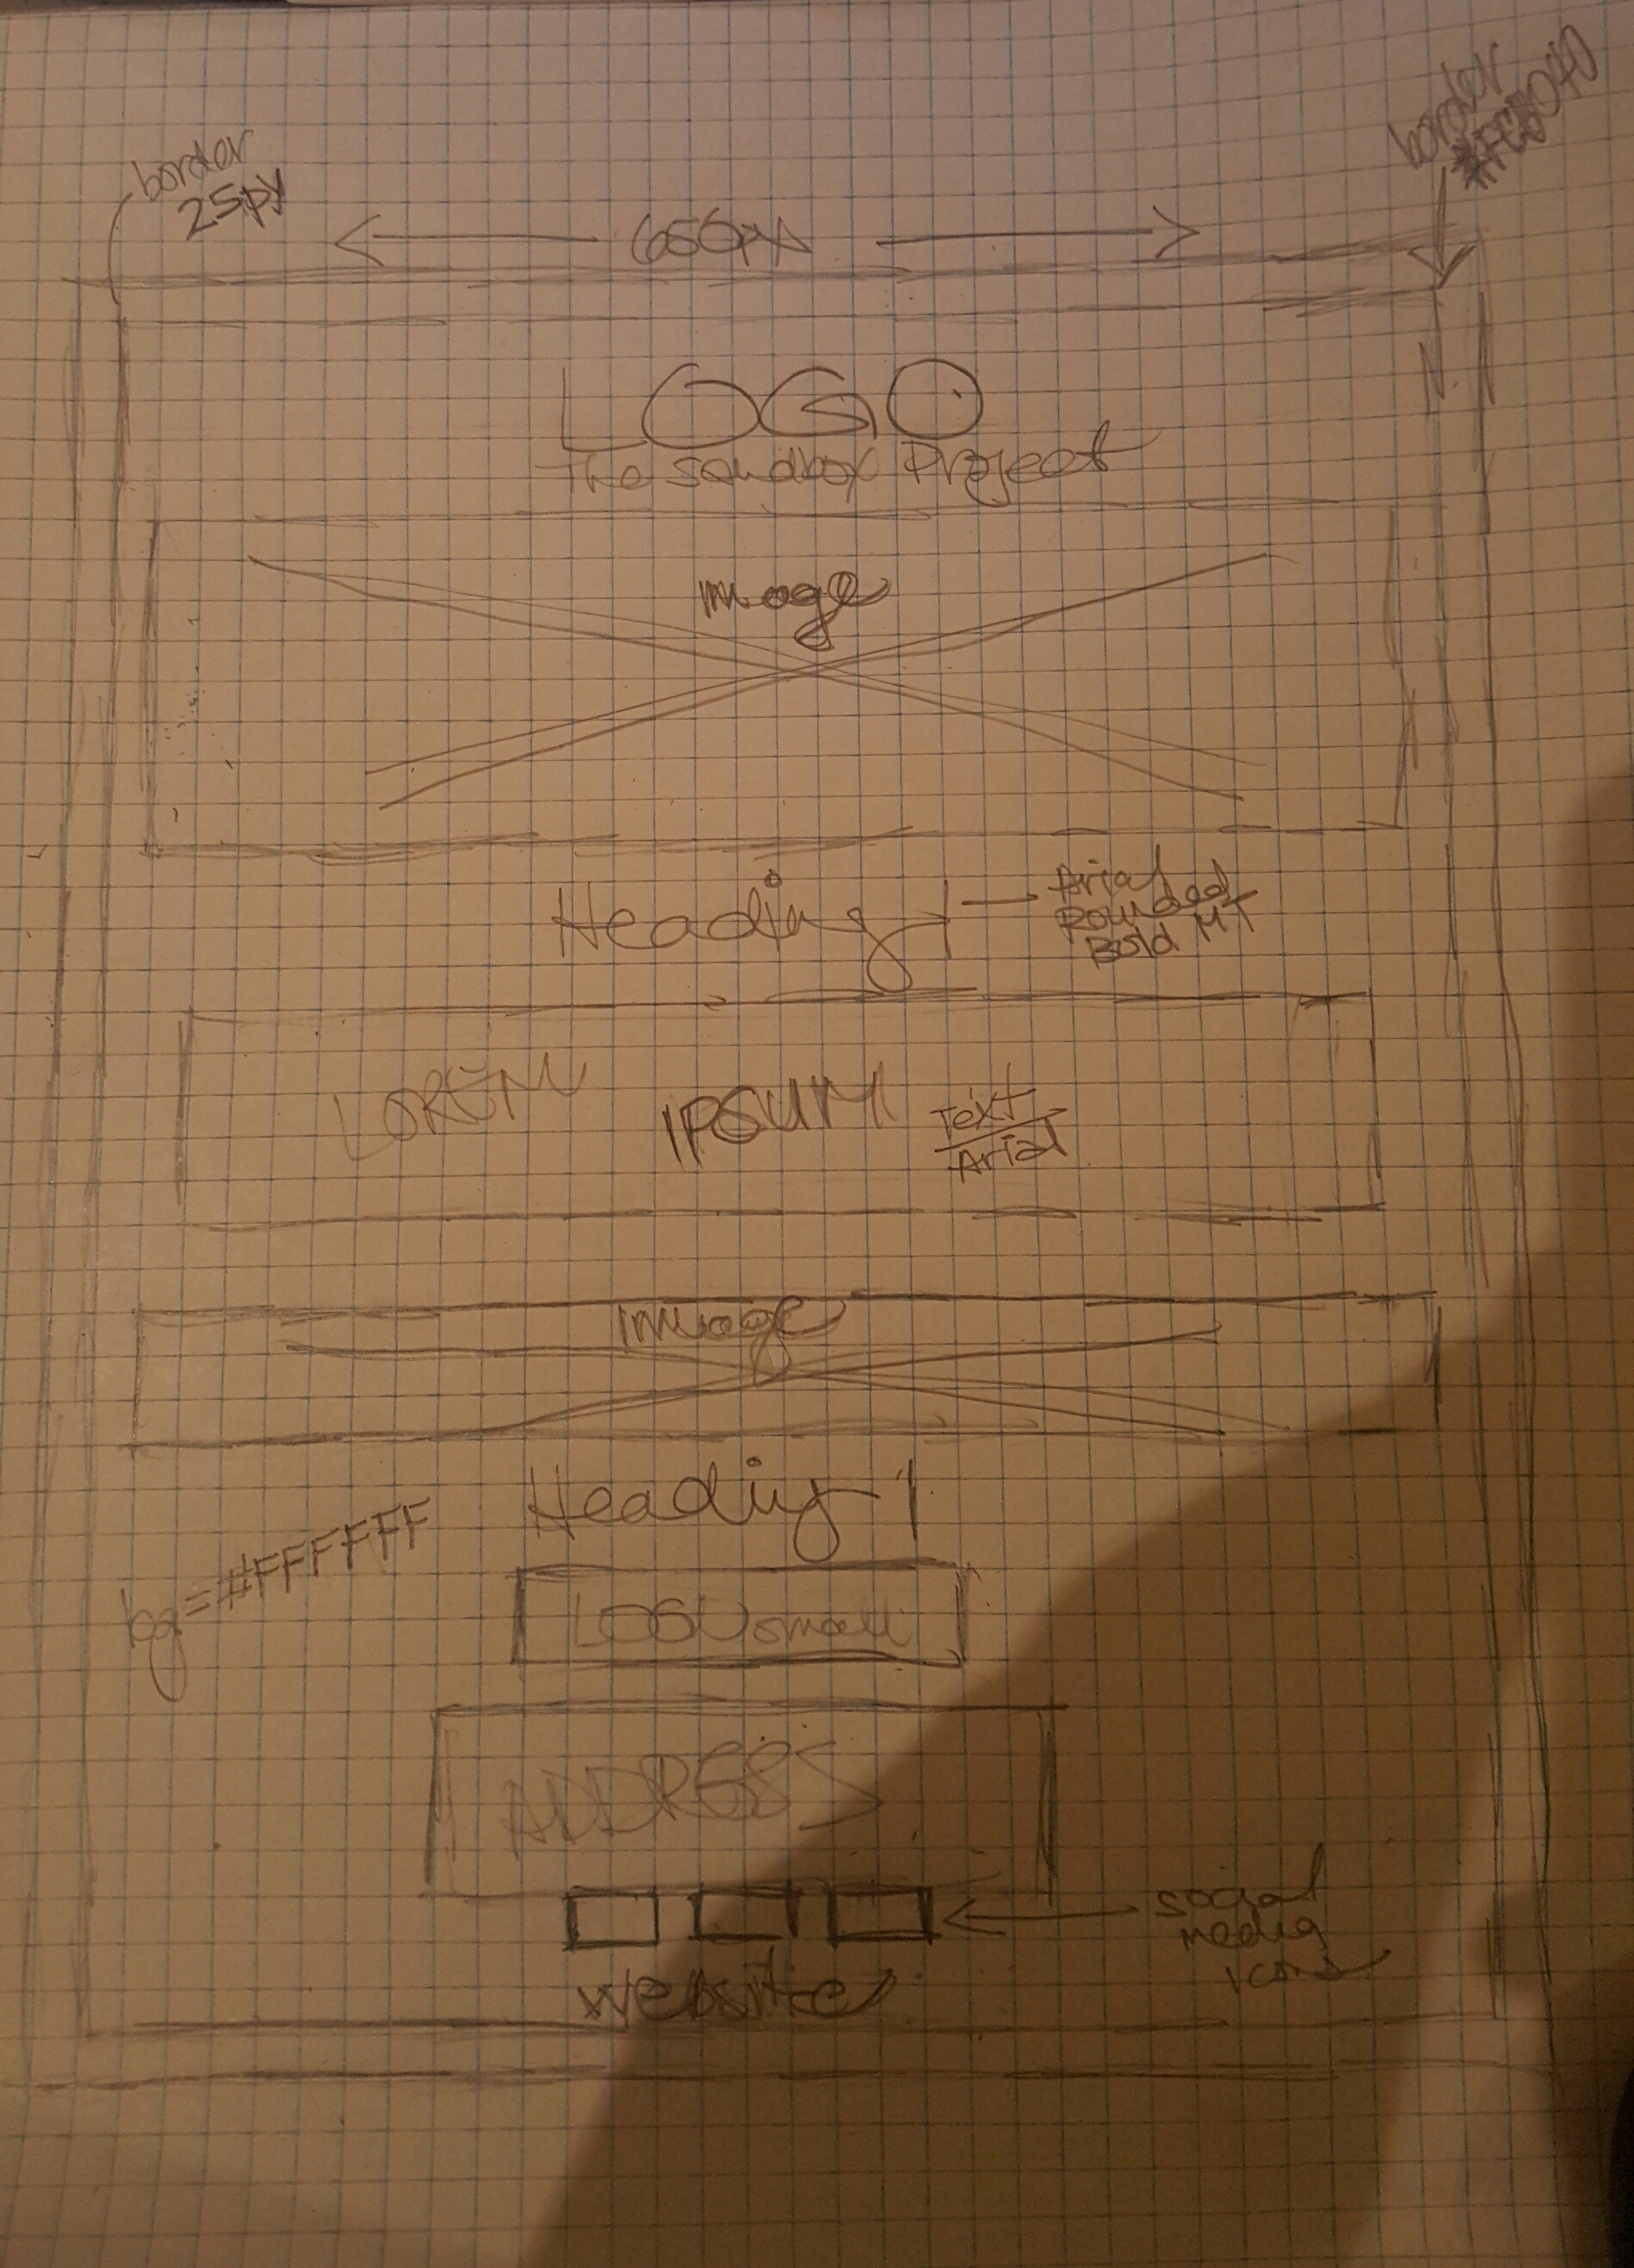 border
25px
650px
border
LOGO
The Sandbox Project
image
Heading 1
Arial
Rounded
Bold MT
LOREM IPSUM
Text
Arial
image
Heading 1
bg=#FFFFFF
LOGO small
ADDRESS
social
media
icons
website